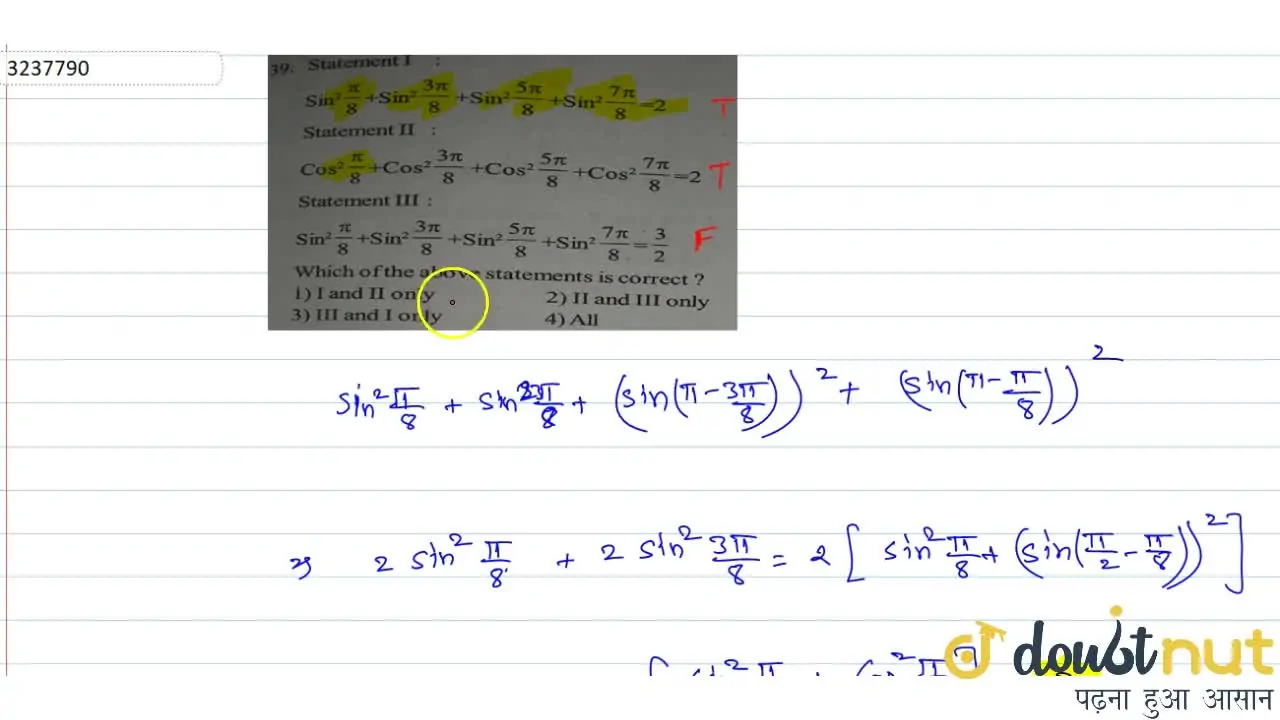 3237790
39. Statement I :
Sin² π/8 +Sin² 3π/8 +Sin² 5π/8 +Sin² 7π/8 =2 T
Statement II :
Cos² π/8 +Cos² 3π/8 +Cos² 5π/8 +Cos² 7π/8 =2 T
Statement III :
Sin² π/8 +Sin² 3π/8 +Sin² 5π/8 +Sin² 7π/8 = 3/2 F
Which of the above statements is correct ?
1) I and II only 2) II and III only
3) III and I only 4) All
sin² π/8 + sin² 3π/8 + (sin(π - 3π/8))² + (sin(π - π/8))²
2 sin² π/8 + 2 sin² 3π/8 = 2 [ sin² π/8 + (sin(π/2 - π/8))² ]
doubtnut
पढ़ना हुआ आसान